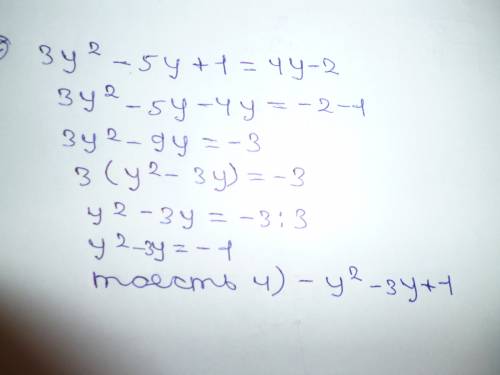 3y² - 5y + 1 = 4y - 2
3y² - 5y - 4y = -2 - 1
3y² - 9y = -3
3 (y² - 3y) = -3
y² - 3y = -3 : 3
y² - 3y = -1
тоесть 4) - y² - 3y + 1